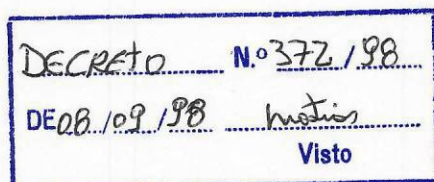 DECRETO N.º 372 / 98
DE 08 / 09 / 98
Visto